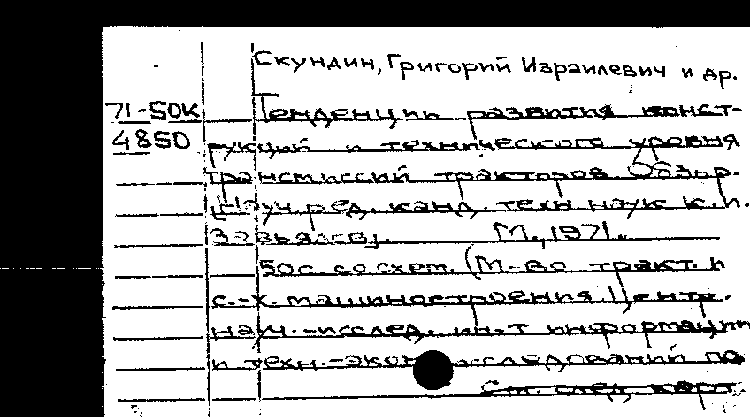 Скундин, Григорий Израилевич и др.
71-50К Тенденции развития конст-
4850 рукций и технического уровня
трансмиссий тракторов. Обзор.
[Науч. ред. канд. техн. наук К.И.
М., 1971.
50 с. со схем. (М-во тракт. и
с.-х. машиностроения. Центр.
науч.-исслед. ин-т информации
и техн.-экон. исследований по
См. след. карт.